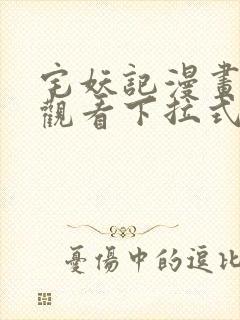 宅妖記漫畫
觀看下拉式
憂傷中的逗比